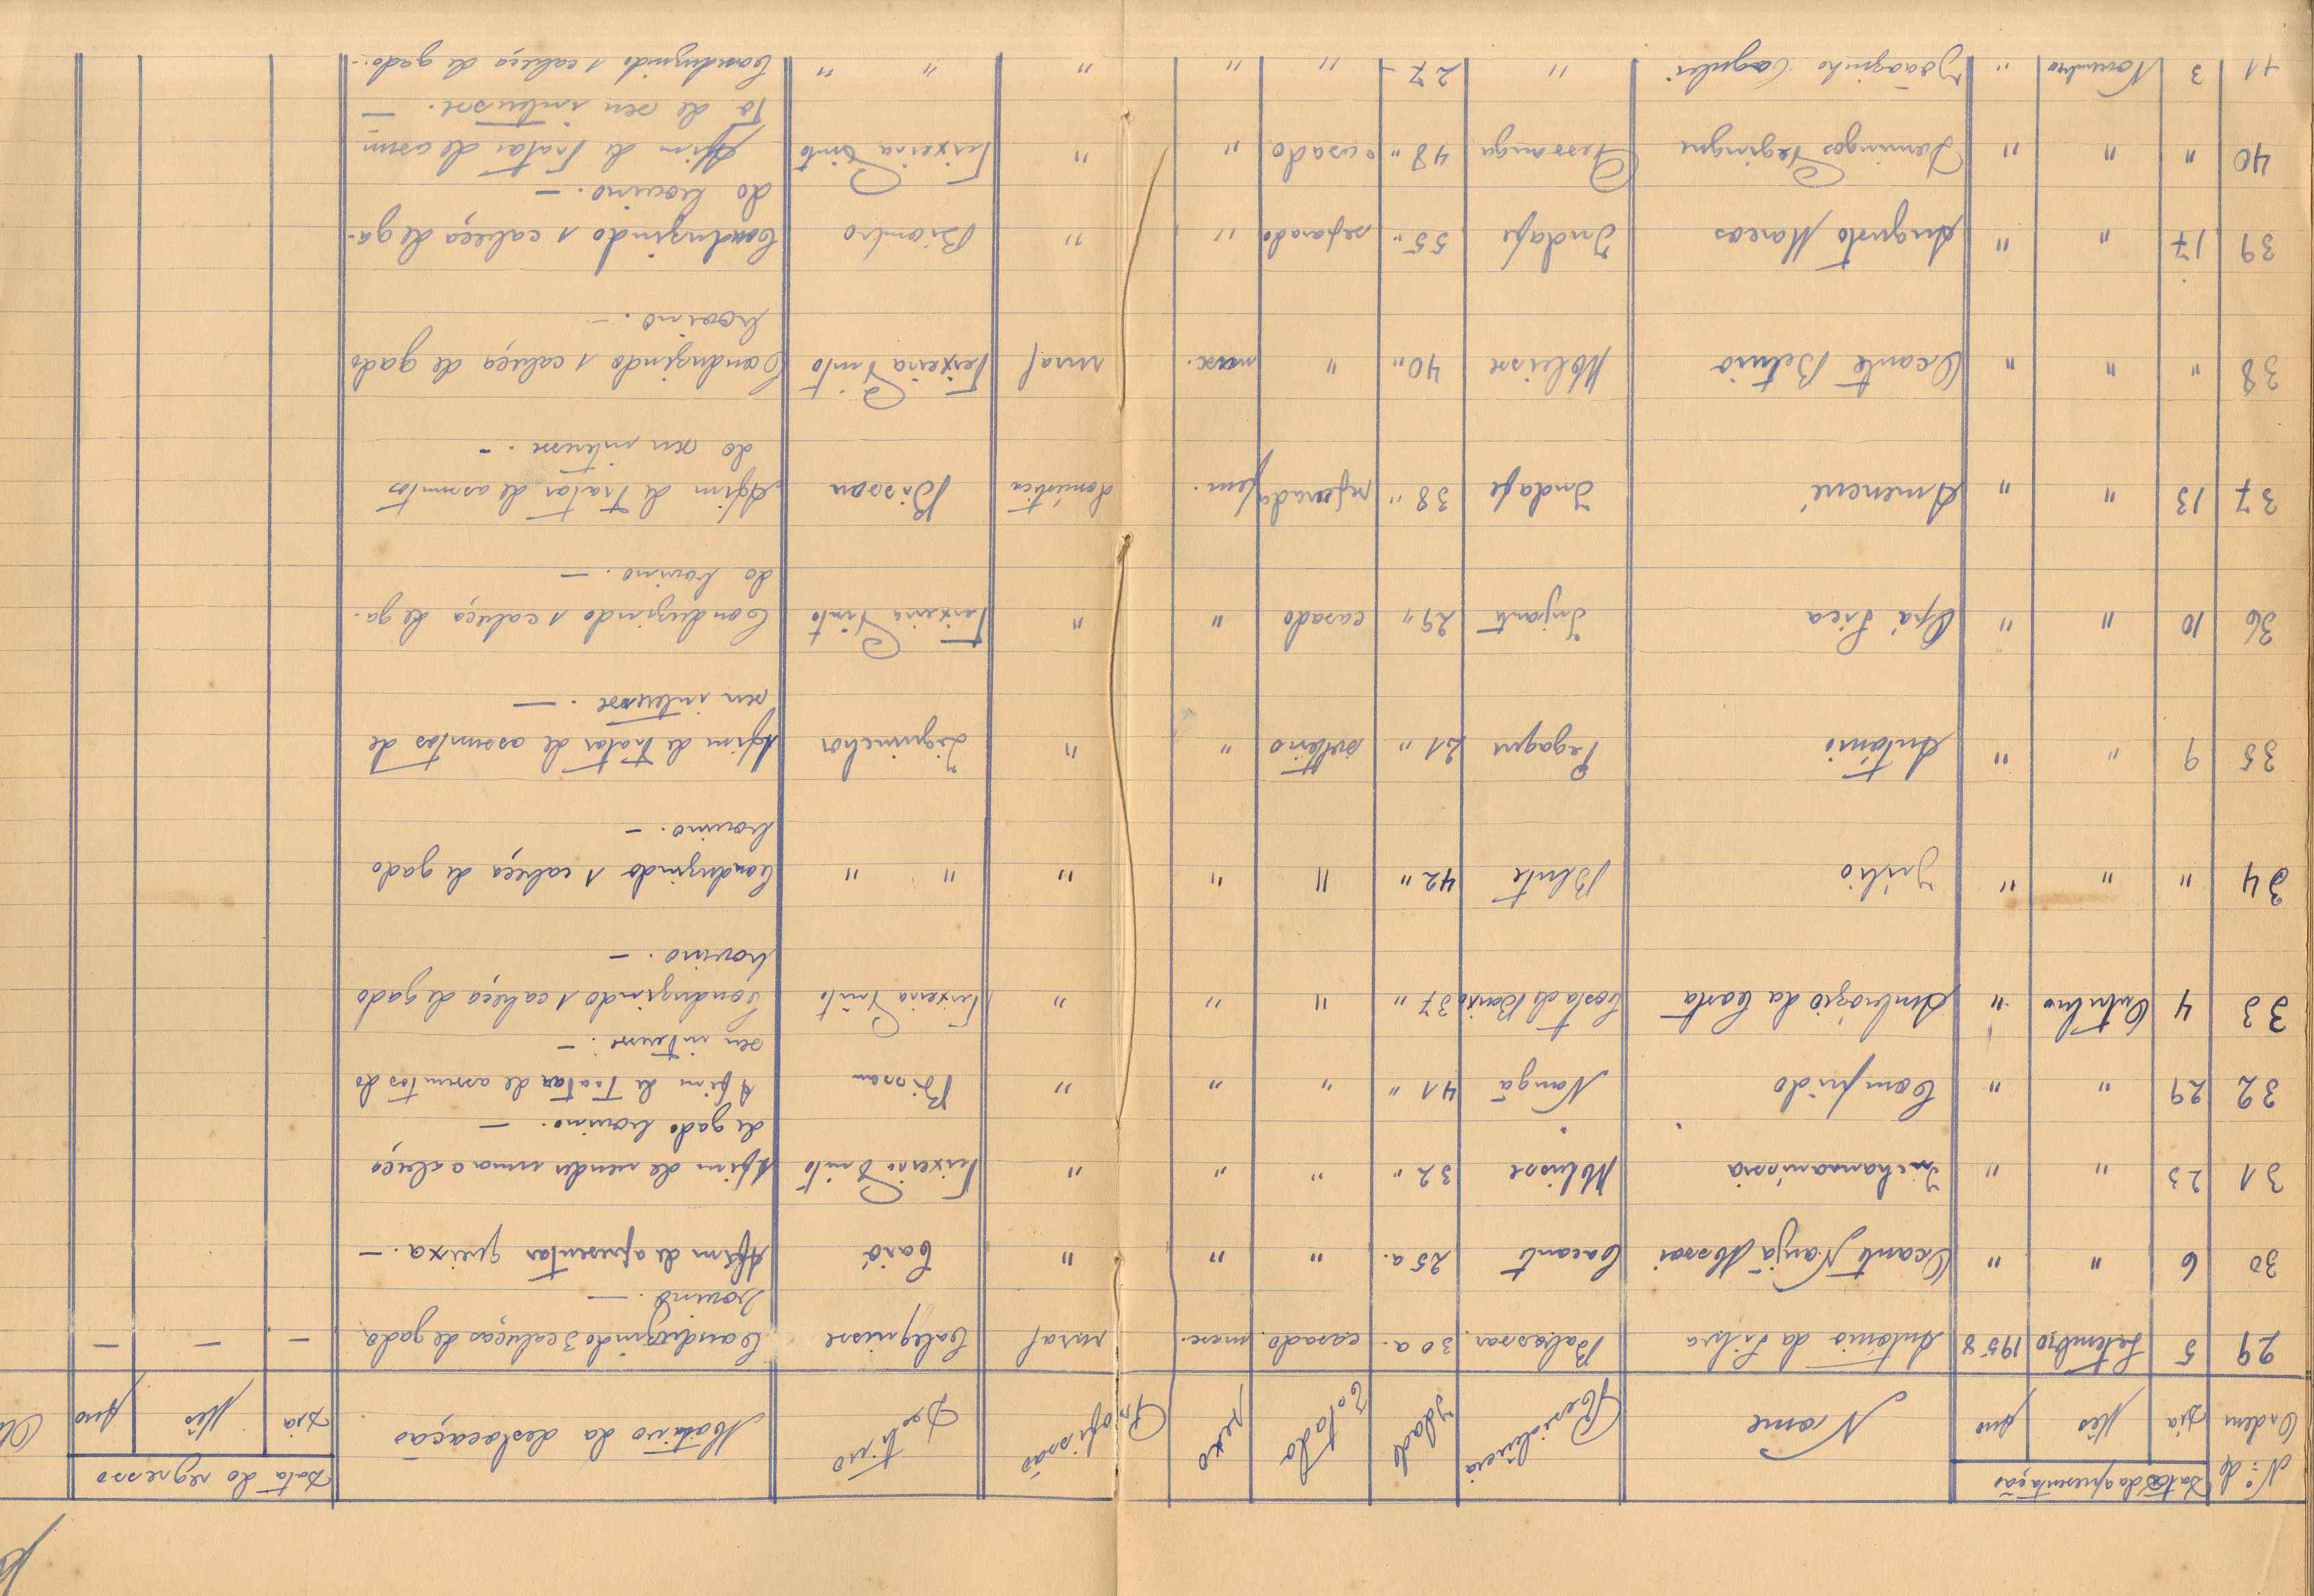 N.º de Ordem | Data da apresentação | Nome | Residência | Idade | Estado | Sexo | Profissão | Destino | Motivo da deslocação | Data do regresso
Dia | Mês | Ano | Dia | Mês | Ano
29 | 5 | Setembro | 1958 | António da Silva | Babossar | 30 a. | casado | masc. | rural | Calequisse | Conduzindo 3 cabeças de gado | — | — | —
bovino. —
30 | 6 | " | " | Ocante Nanjã Mossai | Cacante | 25 a. | " | " | " | Caió | Afim de apresentar queixa. —
31 | 23 | " | " | Inchamanissia | Moleisse | 32 " | " | " | " | Teixeira Pinto | Afim de vender uma cabeça
de gado bovino. —
32 | 29 | " | " | Comprido | Nangã | 41 " | " | " | " | Bissau | Afim de tratar de assuntos do
seu interesse. —
33 | 4 | Outubro | " | Ambrózio da Costa | Costa de Baixo | 37 " | " | " | " | Teixeira Pinto | Conduzindo 1 cabeça de gado
bovino. —
34 | " | " | " | Júlio | Blute | 42 " | " | " | " | " " | Conduzindo 1 cabeça de gado
bovino. —
35 | 9 | " | " | António | Pegagur | 21 " | solteiro | " | " | Ziguinchor | Afim de tratar de assuntos de
seu interesse. —
36 | 10 | " | " | Upá Sica | Injante | 29 " | casado | " | " | Teixeira Pinto | Conduzindo 1 cabeça de ga-
do bovino. —
37 | 13 | " | " | Amencué | Indafe | 38 " | separada | fem. | doméstica | Bissau | Afim de tratar de assuntos
do seu interesse. —
38 | " | " | " | Ocante Betuio | Moleisse | 40 " | " | masc. | rural | Teixeira Pinto | Conduzindo 1 cabeça de gado
bovino. —
39 | 17 | " | " | Augusto Marcos | Indafe | 55 " | separado | " | " | Biombo | Conduzindo 1 cabeça de ga-
do bovino. —
40 | " | " | " | Domingos Peginque | Pessanga | 48 " | casado | " | " | Teixeira Pinto | Afim de tratar de assun
to de seu interesse. —
41 | 3 | Novembro | " | Joãozinho Cagulei | " | 27 - | " | " | " | " " | Conduzindo 1 cabeça de gado. -